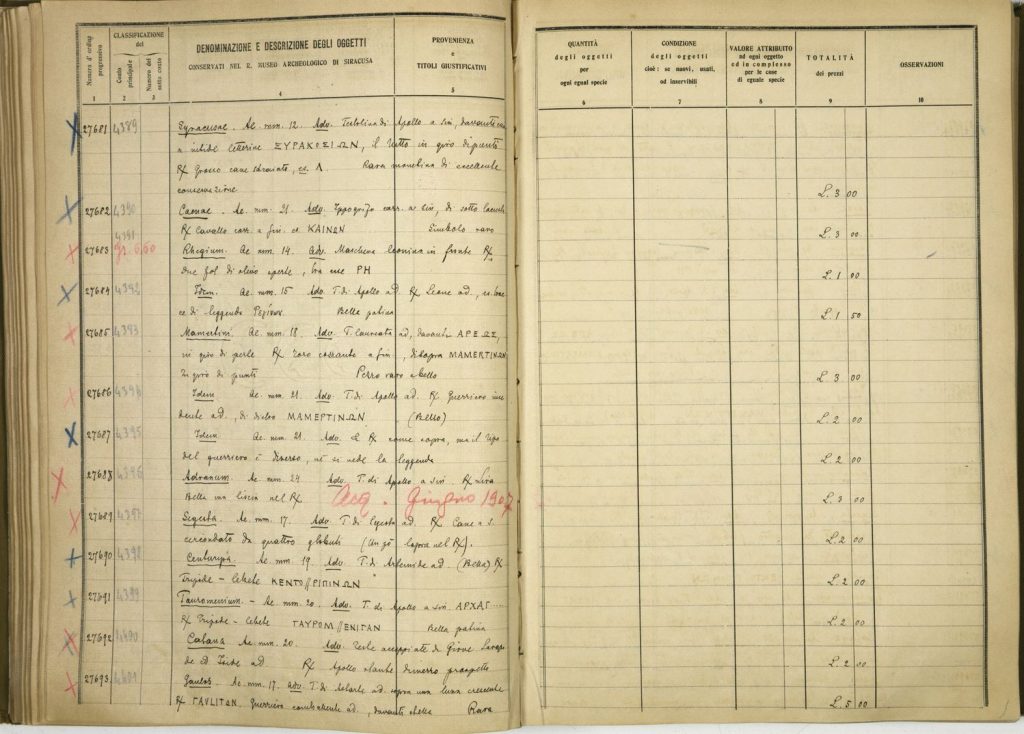 Numero d'ordine progressivo
CLASSIFICAZIONE
del
Conto principale
Numero del sotto conto
DENOMINAZIONE E DESCRIZIONE DEGLI OGGETTI
CONSERVATI NEL R. MUSEO ARCHEOLOGICO DI SIRACUSA
PROVENIENZA
e
TITOLI GIUSTIFICATIVI
1 2 3 4 5
QUANTITÀ
degli oggetti
per
ogni egual specie
CONDIZIONE
degli oggetti
cioè: se nuovi, usati,
od inservibili
VALORE ATTRIBUITO
ad ogni oggetto
ed in complesso
per le cose
di eguale specie
TOTALITÀ
dei prezzi
OSSERVAZIONI
6 7 8 9 10
27681 4389 Syracusae. Ae. mm. 12. Adv. Testolina di Apollo a sin, davanti
a lettere ΣΥΡΑΚΟΣΙΩΝ, il tutto in giro di punti
℞ Grosso cane sdraiato, es. Λ Rara monetina di eccellente
conservazione L. 3 00
27682 4390 Caenae. Ae. mm. 21. Adv. Ippogrifo corr. a sin, di sotto lucerna
℞ Cavallo corr. a sin. es. ΚΑΙΝΩΝ Simbolo raro L. 3 00
4391
27683 gr. 6,60 Rhegium. Ae. mm. 14. Adv. Maschera leonina in fronte ℞
due fol. di olivo aperte, tra esse ΡΗ L. 1 00
27684 4392 Idem. Ae. mm. 15 Adv. T. di Apollo ad. ℞ Leone ad,
di leggenda Bella patina L. 1 50
27685 4393 Mamertini. Ae. mm. 18. Adv. T. laureata ad, davanti ΑΡΕΩΣ,
in giro di perle ℞ Toro cozzante a sin, disopra ΜΑΜΕΡΤΙΝΩΝ
in giro di punti Pezzo raro e bello L. 3 00
27686 4394 Idem Ae. mm. 21. Adv. T. di Apollo ad. ℞ Guerriero
ad., di dietro ΜΑΜΕΡΤΙΝΩΝ (Bello) L. 2 00
27687 4395 Idem. Ae. mm. 21. Adv. e ℞ come sopra, ma il tipo
del guerriero è diverso, né si vede la leggenda L. 2 00
27688 4396 Adranum. Ae. mm. 24. Adv. T. di Apollo a sin. ℞ Lira
Bella ma liscia nel ℞. Acq. Giugno 1907 L. 3 00
27689 4397 Segesta. Ae. mm. 17. Adv. T. di Segesta ad. ℞ Cane a s.
circondato da quattro globuli (Un pò nel ℞). L. 2 00
27690 4398 Centuripa. Ae. mm. 19. Adv. T. di Artemide ad. (Bella) ℞
Tripode - ΚΕΝΤΟ//ΡΙΠΙΝΩΝ L. 2 00
27691 4399 Tauromenium. - Ae. mm. 20. Adv. T. di Apollo a sin. ΑΡΧΑΓ.....
℞ Tripode - ΤΑΥΡΟΜ//ΕΝΙΤΑΝ Bella patina L. 2 00
27692 4400 Catana. Ae. mm. 20. Adv. Teste accoppiate di Giove
ed Iside ad ℞ Apollo stante di prospetto L. 2 00
27693 4401 Gaulos. Ae. mm. 17. Adv. T. di Astarte ad. sopra una luna crescente
℞ ΓΑΥΛΙΤΩΝ. Guerriero combattente ad, davanti stella Rara L. 5 00